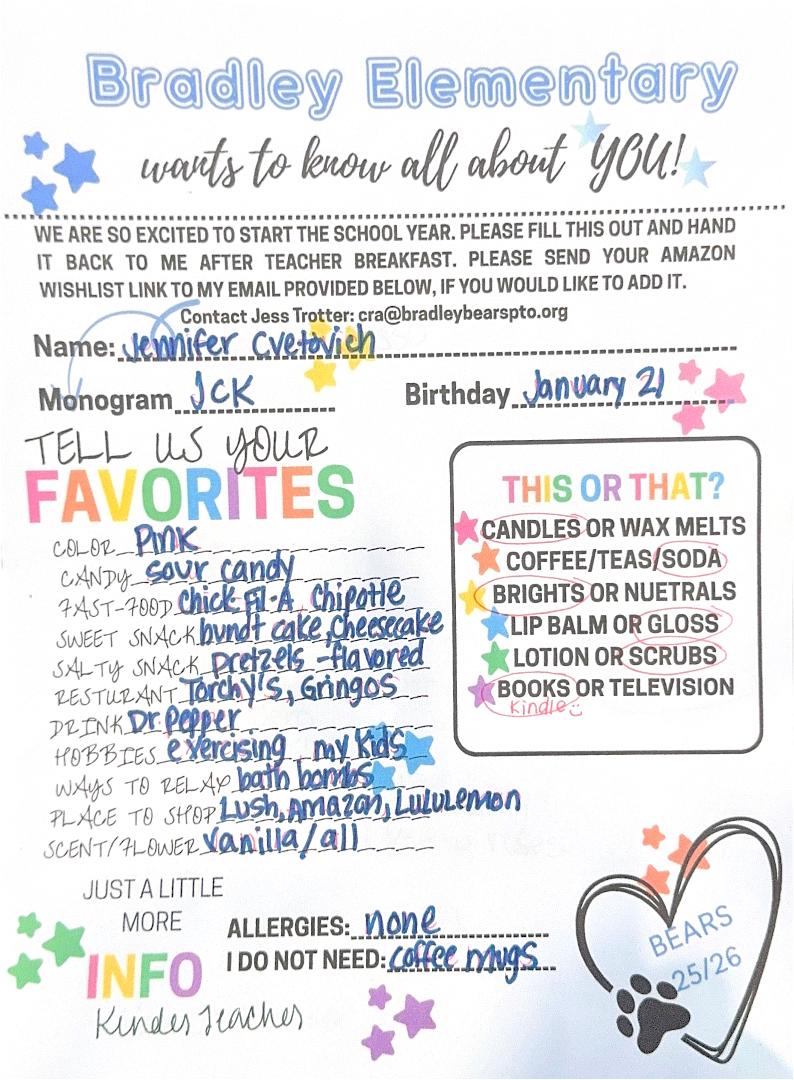 Bradley Elementary
wants to know all about YOU!
WE ARE SO EXCITED TO START THE SCHOOL YEAR. PLEASE FILL THIS OUT AND HAND
IT BACK TO ME AFTER TEACHER BREAKFAST. PLEASE SEND YOUR AMAZON
WISHLIST LINK TO MY EMAIL PROVIDED BELOW, IF YOU WOULD LIKE TO ADD IT.
Contact Jess Trotter: cra@bradleybearspto.org
Name: Jennifer Cvetovich
Monogram JCK Birthday January 21
TELL US YOUR
FAVORITES
COLOR Pink
CANDY sour candy
FAST-FOOD Chick-Fil-A, Chipotle
SWEET SNACK bundt cake, cheesecake
SALTY SNACK pretzels -flavored
RESTURANT Torchy's, Gringos
DRINK Dr Pepper
HOBBIES exercising, my kids
WAYS TO RELAX bath bombs
PLACE TO SHOP Lush, Amazon, Lululemon
SCENT/FLOWER Vanilla/all
THIS OR THAT?
CANDLES OR WAX MELTS
COFFEE/TEAS/SODA
BRIGHTS OR NUETRALS
LIP BALM OR GLOSS
LOTION OR SCRUBS
BOOKS OR TELEVISION
Kindle
JUST A LITTLE
MORE
INFO
ALLERGIES: none
I DO NOT NEED: coffee mugs
Kinder Teacher
BEARS
25/26